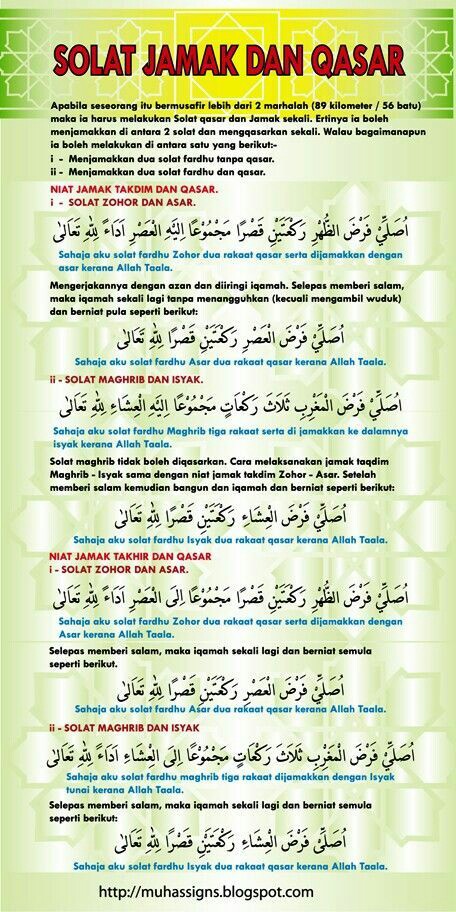 SOLAT JAMAK DAN QASAR
Apabila seseorang itu bermusafir lebih dari 2 marhalah (89 kilometer / 56 batu)
maka ia harus melakukan Solat qasar dan Jamak sekali. Ertinya ia boleh
menjamakkan di antara 2 solat dan mengqasarkan sekali. Walau bagaimanapun
ia boleh melakukan di antara satu yang berikut:-
i - Menjamakkan dua solat fardhu tanpa qasar.
ii - Menjamakkan dua solat fardhu dan qasar.
NIAT JAMAK TAKDIM DAN QASAR.
i - SOLAT ZOHOR DAN ASAR.
اُصَلِّيْ فَرْضَ الظُّهْرِ رَكْعَتَيْنِ قَصْرًا مَجْمُوْعًا اِلَيْهِ الْعَصْرِ اَدَاءً لِلّٰهِ تَعَالٰى
Sahaja aku solat fardhu Zohor dua rakaat qasar serta dijamakkan dengan
asar kerana Allah Taala.
Mengerjakannya dengan azan dan diiringi iqamah. Selepas memberi salam,
maka iqamah sekali lagi tanpa menangguhkan (kecuali mengambil wuduk)
dan berniat pula seperti berikut:
اُصَلِّيْ فَرْضَ الْعَصْرِ رَكْعَتَيْنِ قَصْرًا لِلّٰهِ تَعَالٰى
Sahaja aku solat fardhu Asar dua rakaat qasar kerana Allah Taala.
ii - SOLAT MAGHRIB DAN ISYAK.
اُصَلِّيْ فَرْضَ الْمَغْرِبِ ثَلَاثَ رَكَعَاتٍ مَجْمُوْعًا اِلَيْهِ الْعِشَاءِ لِلّٰهِ تَعَالٰى
Sahaja aku solat fardhu Maghrib tiga rakaat serta di jamakkan ke dalamnya
isyak kerana Allah Taala.
Solat maghrib tidak boleh diqasarkan. Cara melaksanakan jamak taqdim
Maghrib - Isyak sama dengan niat jamak takdim Zohor - Asar. Setelah
memberi salam kemudian bangun dan iqamah dan berniat seperti berikut:
اُصَلِّيْ فَرْضَ الْعِشَاءِ رَكْعَتَيْنِ قَصْرًا لِلّٰهِ تَعَالٰى
Sahaja aku solat fardhu Isyak dua rakaat qasar kerana Allah Taala.
NIAT JAMAK TAKHIR DAN QASAR
i - SOLAT ZOHOR DAN ASAR.
اُصَلِّيْ فَرْضَ الظُّهْرِ رَكْعَتَيْنِ قَصْرًا مَجْمُوْعًا اِلَى الْعَصْرِ اَدَاءً لِلّٰهِ تَعَالٰى
Sahaja aku solat fardhu Zohor dua rakaat qasar serta dijamakkan dengan
Asar kerana Allah Taala.
Selepas memberi salam, maka iqamah sekali lagi dan berniat semula
seperti berikut.
اُصَلِّيْ فَرْضَ الْعَصْرِ رَكْعَتَيْنِ قَصْرًا لِلّٰهِ تَعَالٰى
Sahaja aku solat fardhu Asar dua rakaat qasar kerana Allah Taala.
ii - SOLAT MAGHRIB DAN ISYAK
اُصَلِّيْ فَرْضَ الْمَغْرِبِ ثَلَاثَ رَكَعَاتٍ مَجْمُوْعًا اِلَى الْعِشَاءِ اَدَاءً لِلّٰهِ تَعَالٰى
Sahaja aku solat fardhu maghrib tiga rakaat dijamakkan dengan Isyak
tunai kerana Allah Taala.
Selepas memberi salam, maka iqamah sekali lagi dan berniat semula
seperti berikut:
اُصَلِّيْ فَرْضَ الْعِشَاءِ رَكْعَتَيْنِ قَصْرًا لِلّٰهِ تَعَالٰى
Sahaja aku solat fardhu Isyak dua rakaat qasar kerana Allah Taala.
http://muhassigns.blogspot.com/